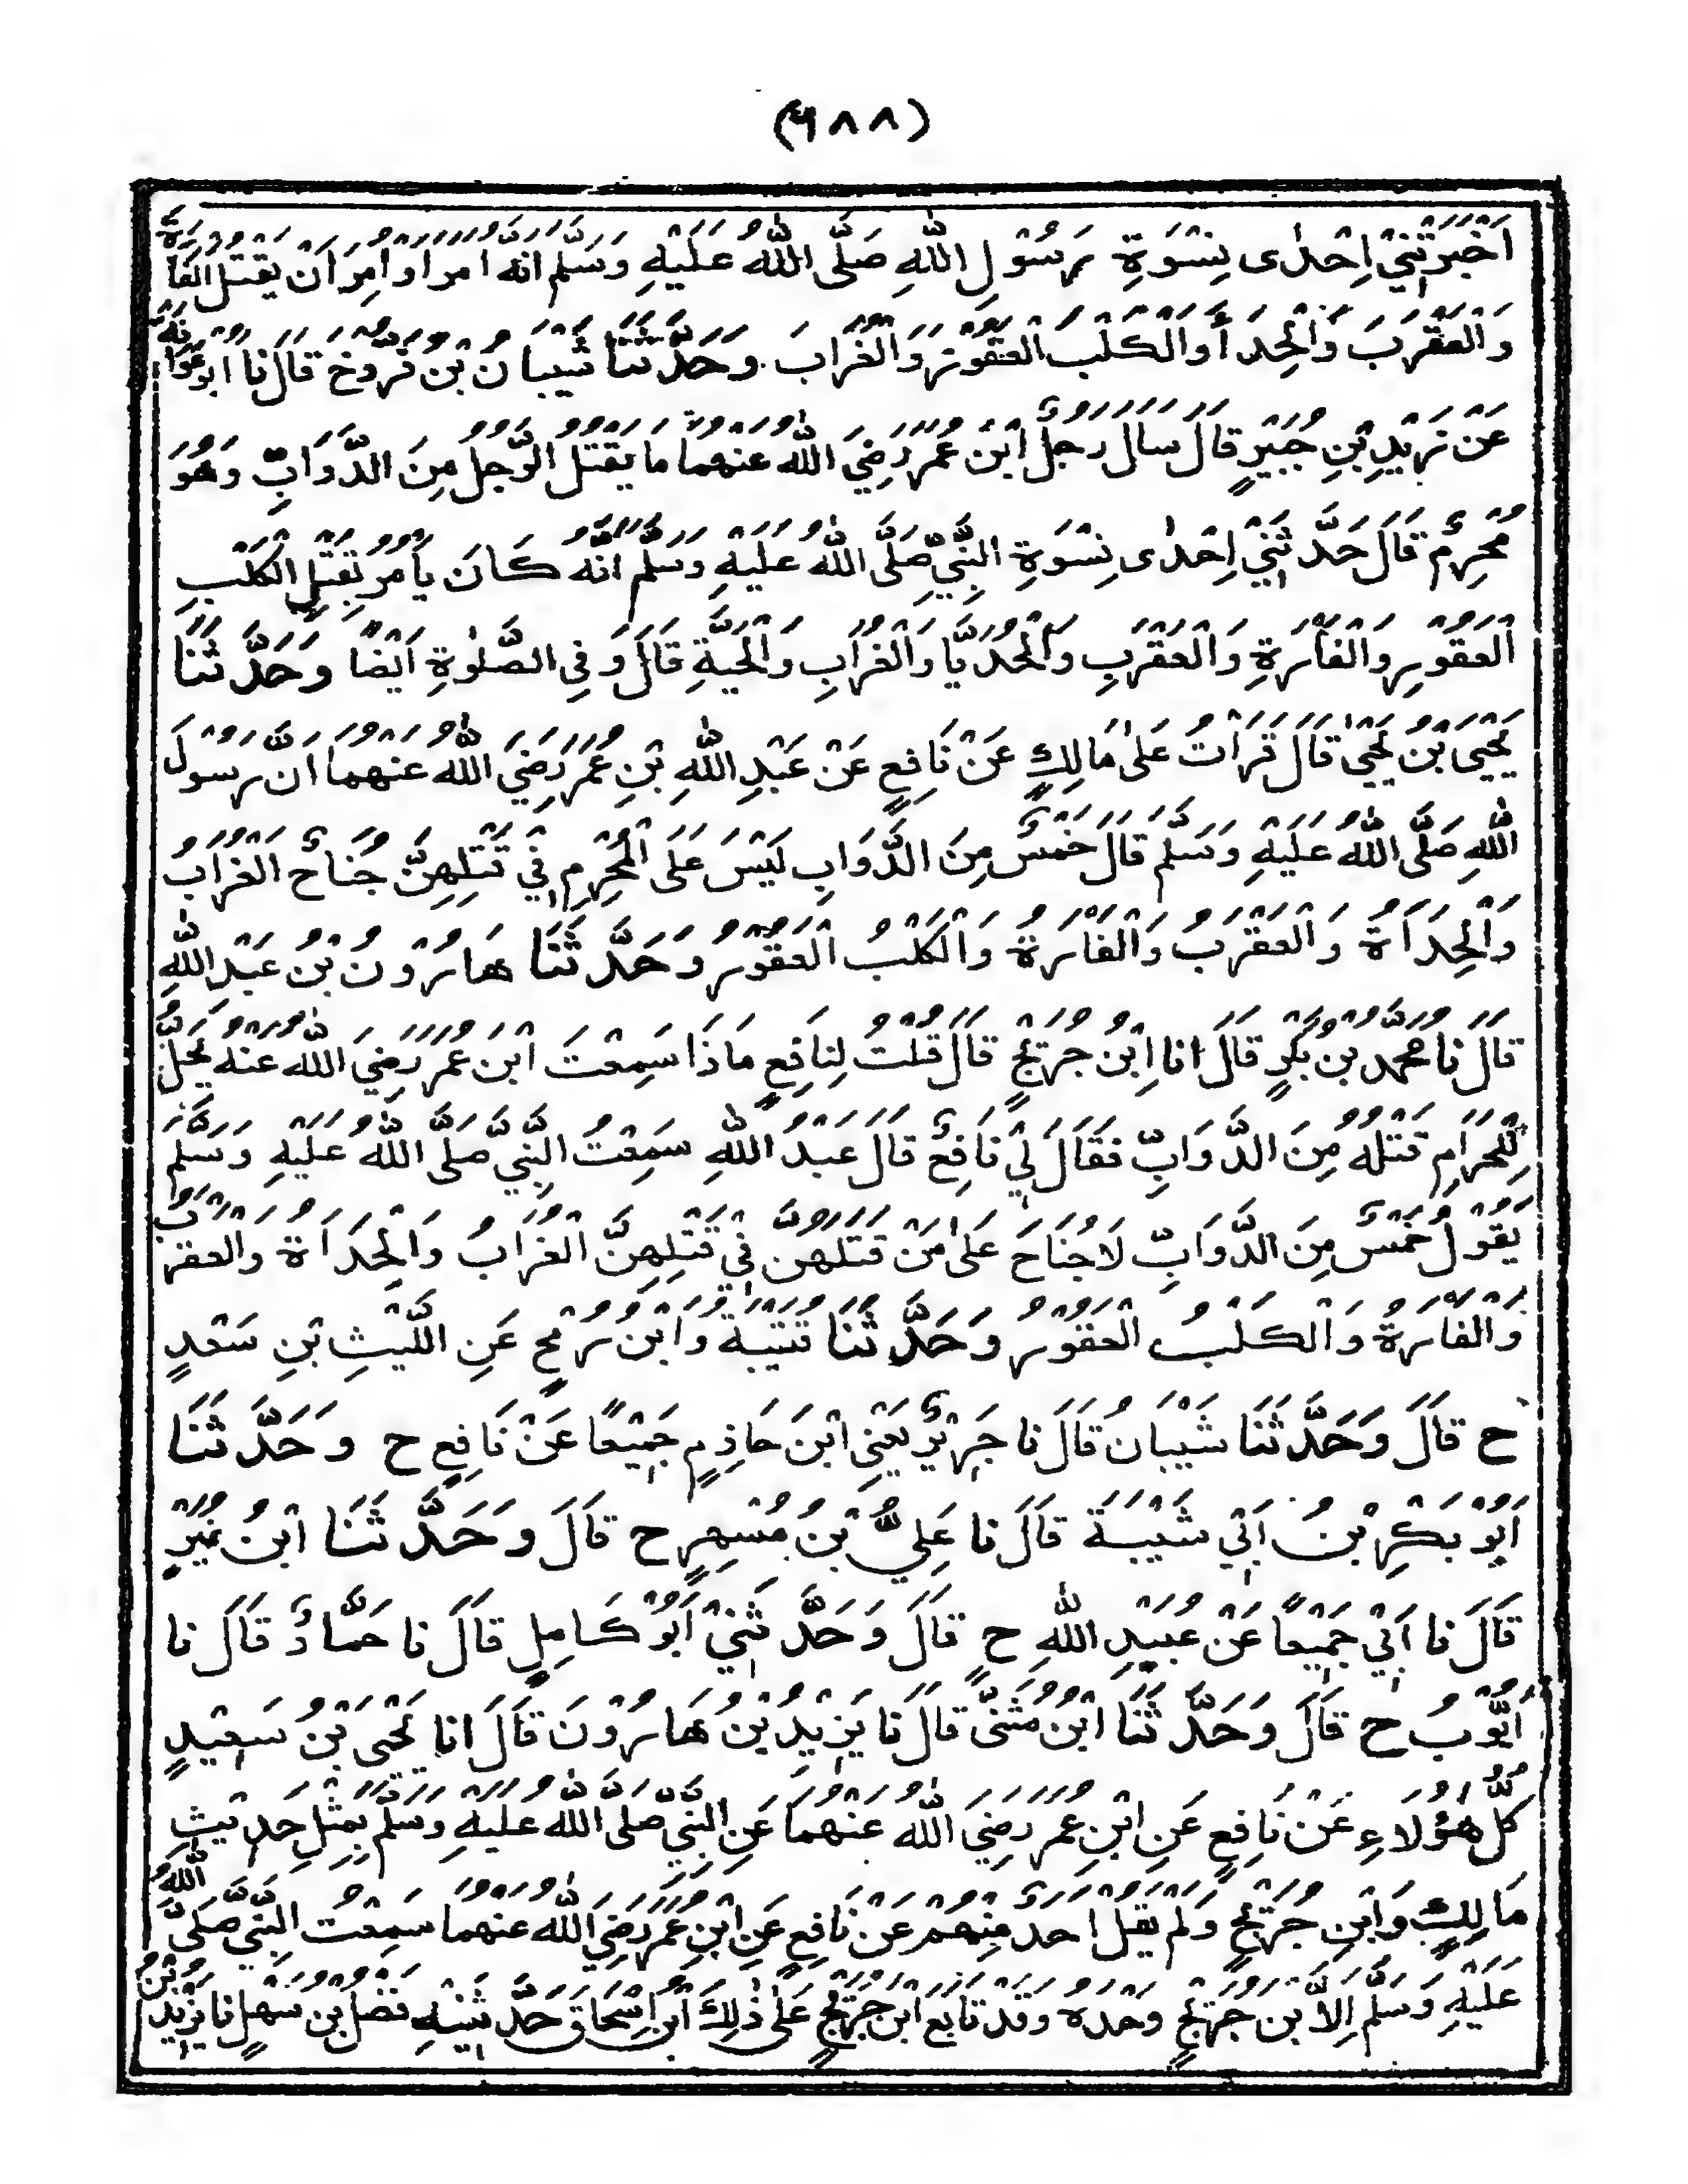 (۶۸۸)
اَخْبَرَتْنِيْ اِحْدٰى نِسْوَةِ رَسُوْلِ اللّٰهِ صَلَّى اللّٰهُ عَلَيْهِ وَسَلَّمَ اَنَّهُ اَمَرَ اَوْ اُمِرَ اَنْ يَقْتُلَ الْفَارَةَ
وَالْعَقْرَبَ وَالْحِدَأَ وَالْكَلْبَ الْعَقُوْرَ وَالْغُرَابَ. وَحَدَّثَنَا شَيْبَانُ بْنُ فَرُّوْخَ قَالَ نَا اَبُوْ عَوَانَةَ
عَنْ زَيْدِ بْنِ جُبَيْرٍ قَالَ سَاَلَ رَجُلٌ ابْنَ عُمَرَ رَضِيَ اللّٰهُ عَنْهُمَا مَا يَقْتُلُ الرَّجُلُ مِنَ الدَّوَابِّ وَهُوَ
مُحْرِمٌ قَالَ حَدَّثَتْنِيْ اِحْدٰى نِسْوَةِ النَّبِيِّ صَلَّى اللّٰهُ عَلَيْهِ وَسَلَّمَ اَنَّهُ كَانَ يَأْمُرُ بِقَتْلِ الْكَلْبِ
الْعَقُوْرِ وَالْفَأْرَةِ وَالْعَقْرَبِ وَالْحُدَيَّا وَالْغُرَابِ وَالْحَيَّةِ قَالَ وَفِي الصَّلٰوةِ اَيْضًا وَحَدَّثَنَا
يَحْيَى بْنُ يَحْيٰى قَالَ قَرَأْتُ عَلٰى مَالِكٍ عَنْ نَافِعٍ عَنْ عَبْدِ اللّٰهِ بْنِ عُمَرَ رَضِيَ اللّٰهُ عَنْهُمَا اَنَّ رَسُوْلَ
اللّٰهِ صَلَّى اللّٰهُ عَلَيْهِ وَسَلَّمَ قَالَ خَمْسٌ مِنَ الدَّوَابِ لَيْسَ عَلَى الْمُحْرِمِ فِيْ قَتْلِهِنَّ جُنَاحٌ الْغُرَابُ
وَالْحِدَاَةُ وَالْعَقْرَبُ وَالْفَارَةُ وَالْكَلْبُ الْعَقُوْرُ وَحَدَّثَنَا هَارُوْنُ بْنُ عَبْدِ اللّٰهِ
قَالَ نَا مُحَمَّدُ بْنُ بَكْرٍ قَالَ اَنَا اِبْنُ جُرَيْجٍ قَالَ قُلْتُ لِنَافِعٍ مَاذَا سَمِعْتَ ابْنَ عُمَرَ رَضِيَ اللّٰهُ عَنْهُ يُحِلُّ
لِلْحَرَامِ قَتْلَهُ مِنَ الدَّوَابِّ فَقَالَ لِيْ نَافِعٌ قَالَ عَبْدُ اللّٰهِ سَمِعْتُ النَّبِيَّ صَلَّى اللّٰهُ عَلَيْهِ وَسَلَّمَ
يَقُوْلُ خَمْسٌ مِنَ الدَّوَابِّ لَا جُنَاحَ عَلٰى مَنْ قَتَلَهُنَّ فِيْ قَتْلِهِنَّ الْغُرَابُ وَالْحِدَاَةُ وَالْعَقْرَبُ
وَالْفَارَةُ وَالْكَلْبُ الْعَقُوْرُ وَحَدَّثَنَا قُتَيْبَةُ وَابْنُ رُمْحٍ عَنِ اللَّيْثِ بْنِ سَعْدٍ
ح قَالَ وَحَدَّثَنَا شَيْبَانُ قَالَ نَا جَرِيْرٌ يَعْنِي ابْنَ حَازِمٍ جَمِيْعًا عَنْ نَافِعٍ ح وَحَدَّثَنَا
اَبُوْ بَكْرِ بْنُ اَبِيْ شَيْبَةَ قَالَ نَا عَلِيُّ بْنُ مُسْهِرٍ ح قَالَ وَحَدَّثَنَا ابْنُ نُمَيْرٍ
قَالَ نَا اَبِيْ جَمِيْعًا عَنْ عُبَيْدِ اللّٰهِ ح قَالَ وَحَدَّثَنِيْ اَبُوْ كَامِلٍ قَالَ نَا حَمَّادٌ قَالَ نَا
اَيُّوْبُ ح قَالَ وَحَدَّثَنَا ابْنُ مُثَنّٰى قَالَ نَا يَزِيْدُ بْنُ هَارُوْنَ قَالَ اَنَا يَحْيَى بْنُ سَعِيْدٍ
كُلُّ هٰؤُلَاءِ عَنْ نَافِعٍ عَنِ ابْنِ عُمَرَ رَضِيَ اللّٰهُ عَنْهُمَا عَنِ النَّبِيِّ صَلَّى اللّٰهُ عَلَيْهِ وَسَلَّمَ بِمِثْلِ حَدِيْثِ
مَالِكٍ وَابْنِ جُرَيْجٍ وَلَمْ يَقُلْ اَحَدٌ مِنْهُمْ عَنْ نَافِعٍ عَنِ ابْنِ عُمَرَ رَضِيَ اللّٰهُ عَنْهُمَا سَمِعْتُ النَّبِيَّ صَلَّى اللّٰهُ
عَلَيْهِ وَسَلَّمَ اِلَّا بْنُ جُرَيْجٍ وَحْدَهُ وَقَدْ تَابَعَ ابْنَ جُرَيْجٍ عَلٰى ذٰلِكَ ابْنُ اِسْحَاقَ حَدَّثَنِيْهِ فَضْلُ بْنُ سَهْلٍ نَا يَزِيْدُ بْنُ